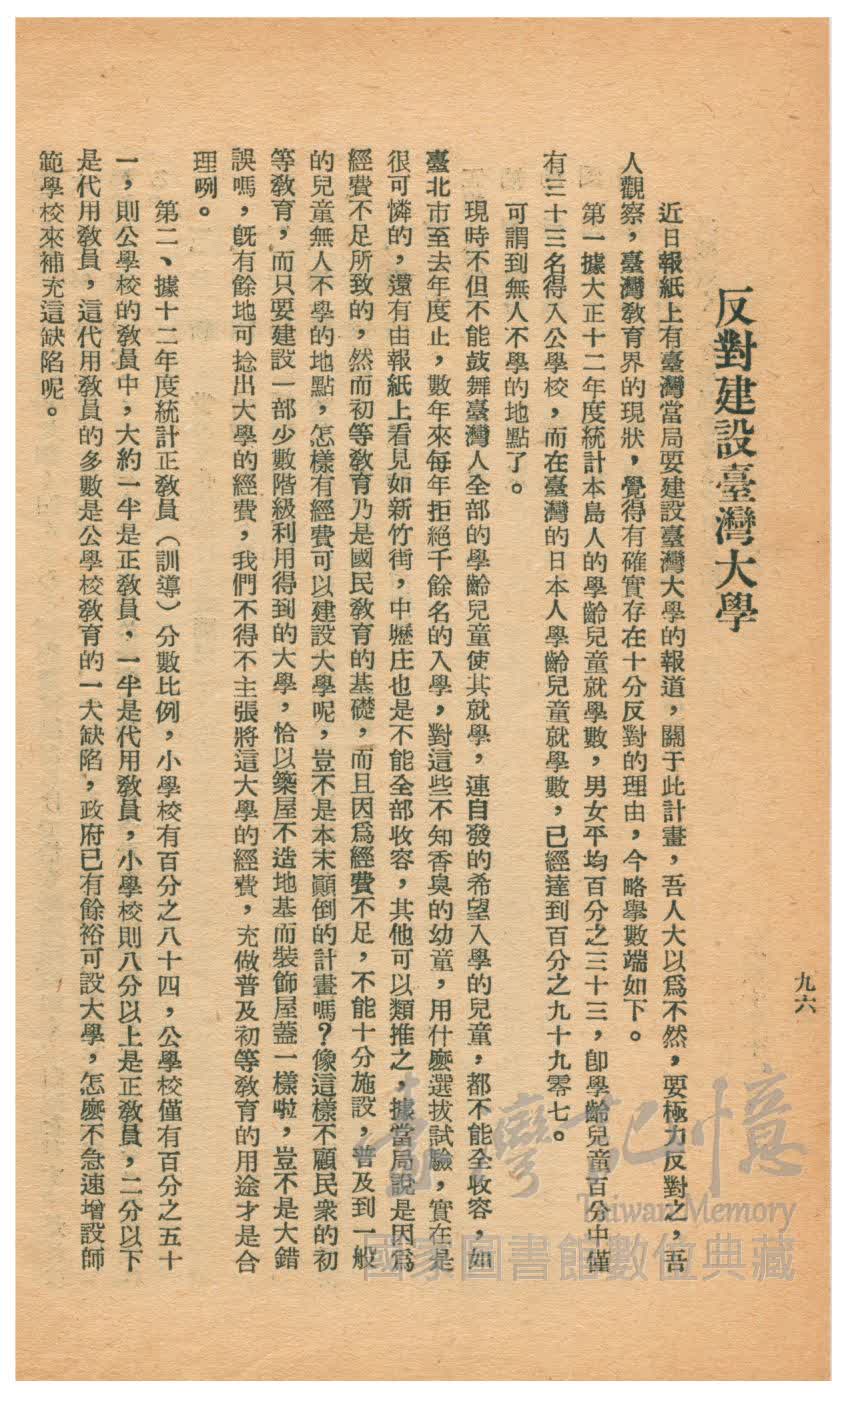 九六
反對建設臺灣大學
近日報紙上有臺灣當局要建設臺灣大學的報道，關于此計畫，吾人大以爲不然，要極力反對之，吾
人觀察，臺灣教育界的現狀，覺得有確實存在十分反對的理由，今略舉數端如下。
第一據大正十二年度統計本島人的學齡兒童就學數，男女平均百分之三十三，卽學齡兒童百分中僅
有三十三名得入公學校，而在臺灣的日本人學齡兒童就學數，已經達到百分之九十九零七。
可謂到無人不學的地點了。
現時不但不能鼓舞臺灣人全部的學齡兒童使其就學，連自發的希望入學的兒童，都不能全收容，如
臺北市至去年度止，數年來每年拒絕千餘名的入學，對這些不知香臭的幼童，用什麼選拔試驗，實在是
很可憐的，還有由報紙上看見如新竹街，中壢庄也是不能全部收容，其他可以類推之，據當局說是因爲
經費不足所致的，然而初等教育乃是國民教育的基礎，而且因爲經費不足，不能十分施設，普及到一般
的兒童無人不學的地點，怎樣有經費可以建設大學呢，豈不是本末顚倒的計畫嗎？像這樣不顧民衆的初
等教育，而只要建設一部少數階級利用得到的大學，恰以築屋不造地基而裝飾屋蓋一樣啦，豈不是大錯
誤嗎，旣有餘地可捻出大學的經費，我們不得不主張將這大學的經費，充做普及初等教育的用途才是合
理咧。
第二、據十二年度統計正教員（訓導）分數比例，小學校有百分之八十四，公學校僅有百分之五十
一，則公學校的教員中，大約一半是正教員，一半是代用教員，小學校則八分以上是正教員，二分以下
是代用教員，這代用教員的多數是公學校教育的一大缺陷，政府已有餘裕可設大學，怎麼不急速增設師
範學校來補充這缺陷呢。
臺灣記憶
Taiwan Memory
國家圖書館數位典藏